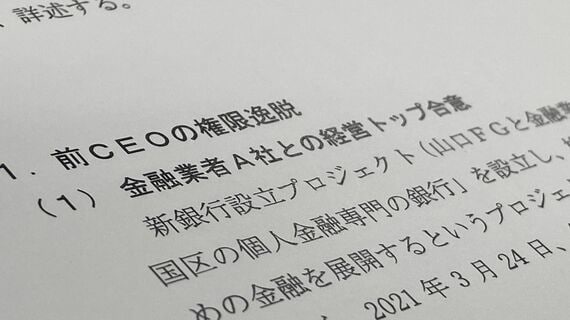 、詳述する。
1．前ＣＥＯの権限逸脱
（1） 金融業者Ａ社との経営トップ合意
新銀行設立プロジェクト（山口ＦＧと金融
国区の個人金融専門の銀行」を設立し、
めの金融を展開するというプロジェ
2021年3月24日、